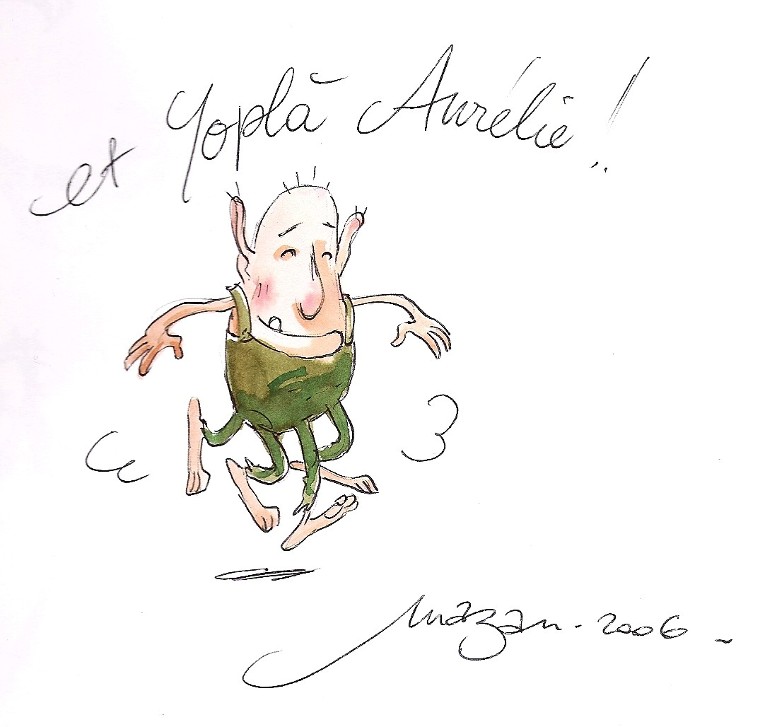 et Yoplà Aurélie !
Mazan - 2006 -